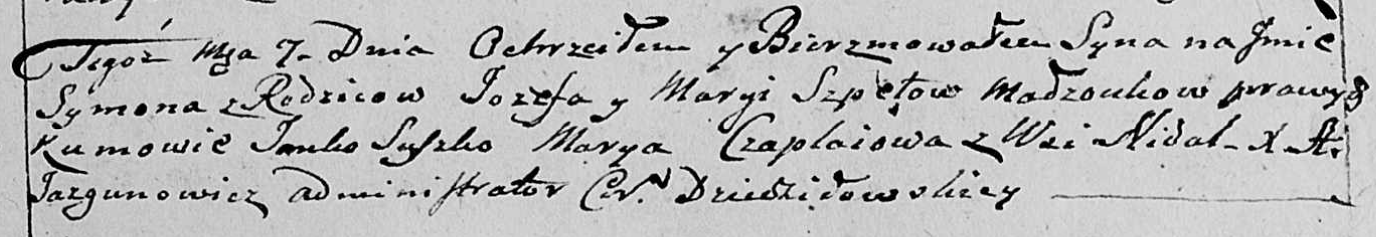 Tegoż Mca 7. Dnia Ochrzciłem y Bierzmowałem Syna na Jmie
Symona z Rodzicow Jozefa y Maryi Szpetow Małzonkow prawych
Kumowie Janko Suszko Marya Czaplaiowa z Wsi Nidal. X A.
Jazgunowicz administrator Cer. Dziedziłowskiey